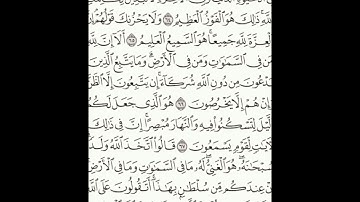 ٱللَّهِ ذَٰلِكَ هُوَ ٱلْفَوْزُ ٱلْعَظِيمُ ٦٤ وَلَا يَحْزُنكَ قَوْلُهُمْ
ٱلْعِزَّةَ لِلَّهِ جَمِيعًا ۚ هُوَ ٱلسَّمِيعُ ٱلْعَلِيمُ ٦٥ أَلَآ إِنَّ لِلَّهِ
ٱلسَّمَٰوَٰتِ وَمَن فِى ٱلْأَرْضِ ۗ وَمَا يَتَّبِعُ ٱلَّذِينَ
يَدْعُونَ مِن دُونِ ٱللَّهِ شُرَكَآءَ ۚ إِن يَتَّبِعُونَ إِلَّا ٱلظَّنَّ
وَإِنْ هُمْ إِلَّا يَخْرُصُونَ ٦٦ هُوَ ٱلَّذِى جَعَلَ لَكُمُ
ٱلَّيْلَ لِتَسْكُنُوا۟ فِيهِ وَٱلنَّهَارَ مُبْصِرًا ۚ إِنَّ فِى ذَٰلِكَ
لَءَايَٰتٍ لِّقَوْمٍ يَسْمَعُونَ ٦٧ قَالُوا۟ ٱتَّخَذَ ٱللَّهُ وَلَدًا
سُبْحَٰنَهُۥ ۖ هُوَ ٱلْغَنِىُّ ۖ لَهُۥ مَا فِى ٱلسَّمَٰوَٰتِ وَمَا فِى ٱلْأَرْضِ
إِنْ عِندَكُم مِّن سُلْطَٰنٍۭ بِهَٰذَآ ۚ أَتَقُولُونَ عَلَى ٱللَّهِ